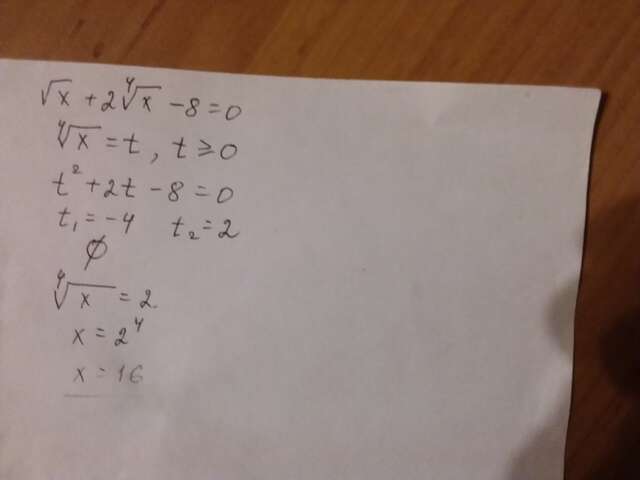 √x + 2⁴√x − 8 = 0
⁴√x = t, t ≥ 0
t² + 2t − 8 = 0
t₁ = −4 t₂ = 2
∅
⁴√x = 2
x = 2⁴
x = 16